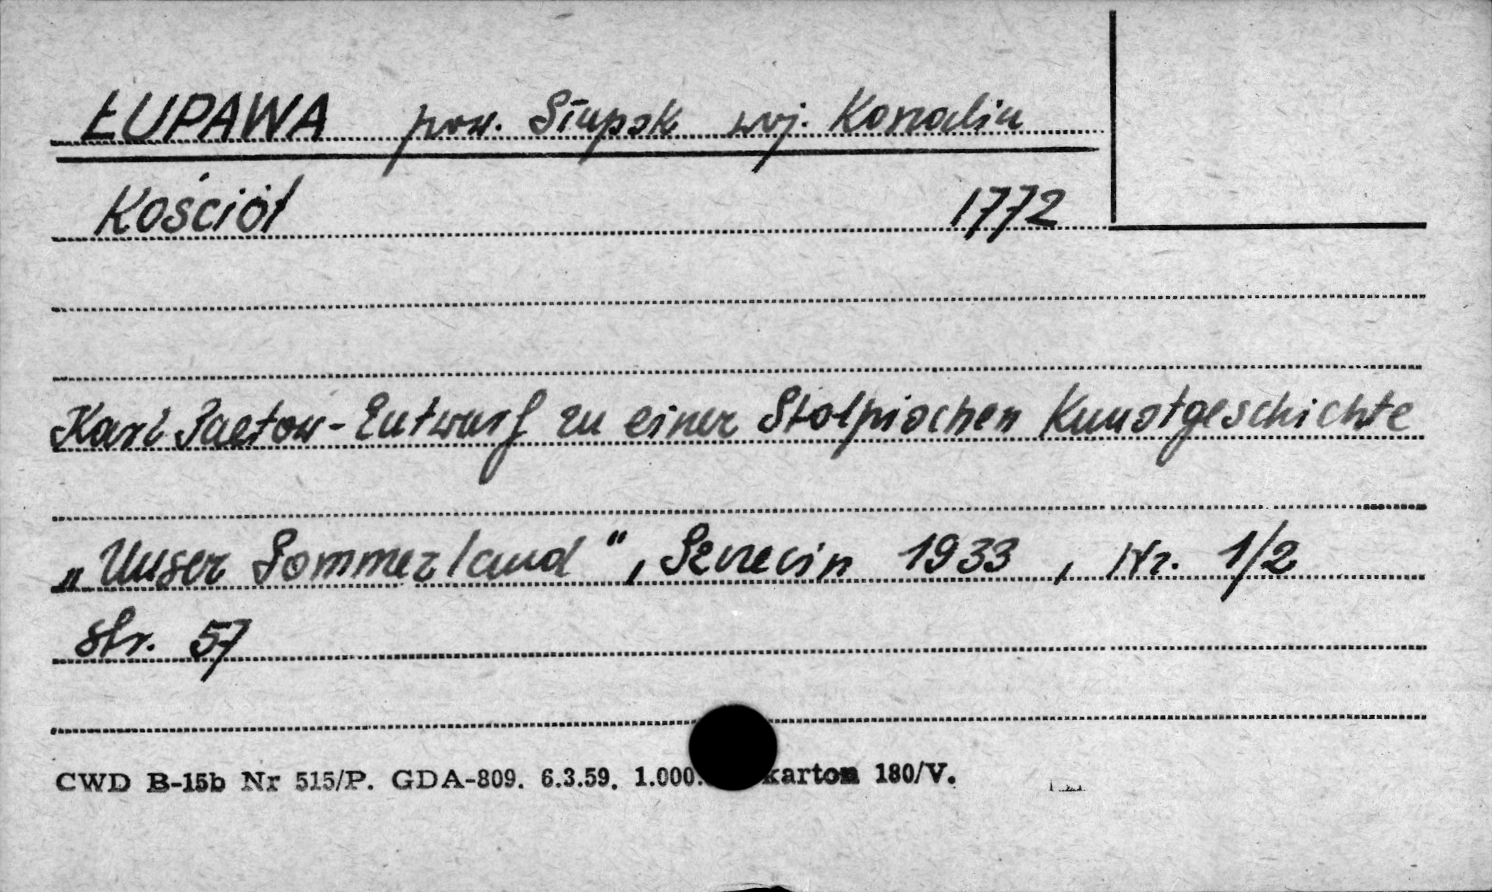 ŁUPAWA pow. Słupsk woj. Koszalin
Kościół 1772
Karl Paetow - Entwurf zu einer Stolpischen Kunstgeschichte
„Unser Pommerland", Szczecin 1933, Nr. 1/2
str. 57
CWD B-15b Nr 515/P. GDA-809. 6.3.59. 1.000. karton 180/V.